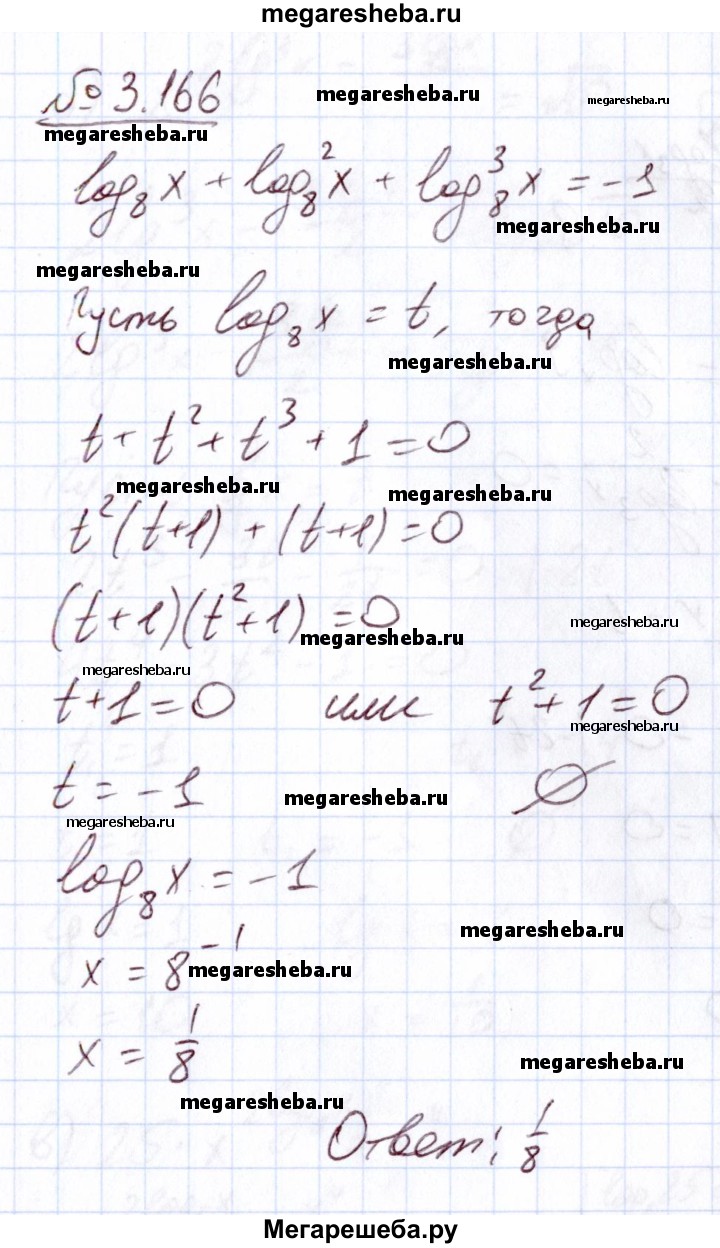 megaresheba.ru
№ 3.166
megaresheba.ru megaresheba.ru
megaresheba.ru
log₈x + log₈²x + log₈³x = -1
megaresheba.ru
megaresheba.ru
Пусть log₈x = t, тогда
megaresheba.ru
t + t² + t³ + 1 = 0
megaresheba.ru megaresheba.ru
t²(t+1) + (t+1) = 0
(t+1)(t²+1) = 0
megaresheba.ru megaresheba.ru
megaresheba.ru
t+1 = 0 или t²+1 = 0
megaresheba.ru
t = -1 ∅
megaresheba.ru
megaresheba.ru
log₈x = -1
megaresheba.ru
x = 8⁻¹
megaresheba.ru
x = 1/8
megaresheba.ru
megaresheba.ru
Ответ: 1/8
Мегарешеба.ру